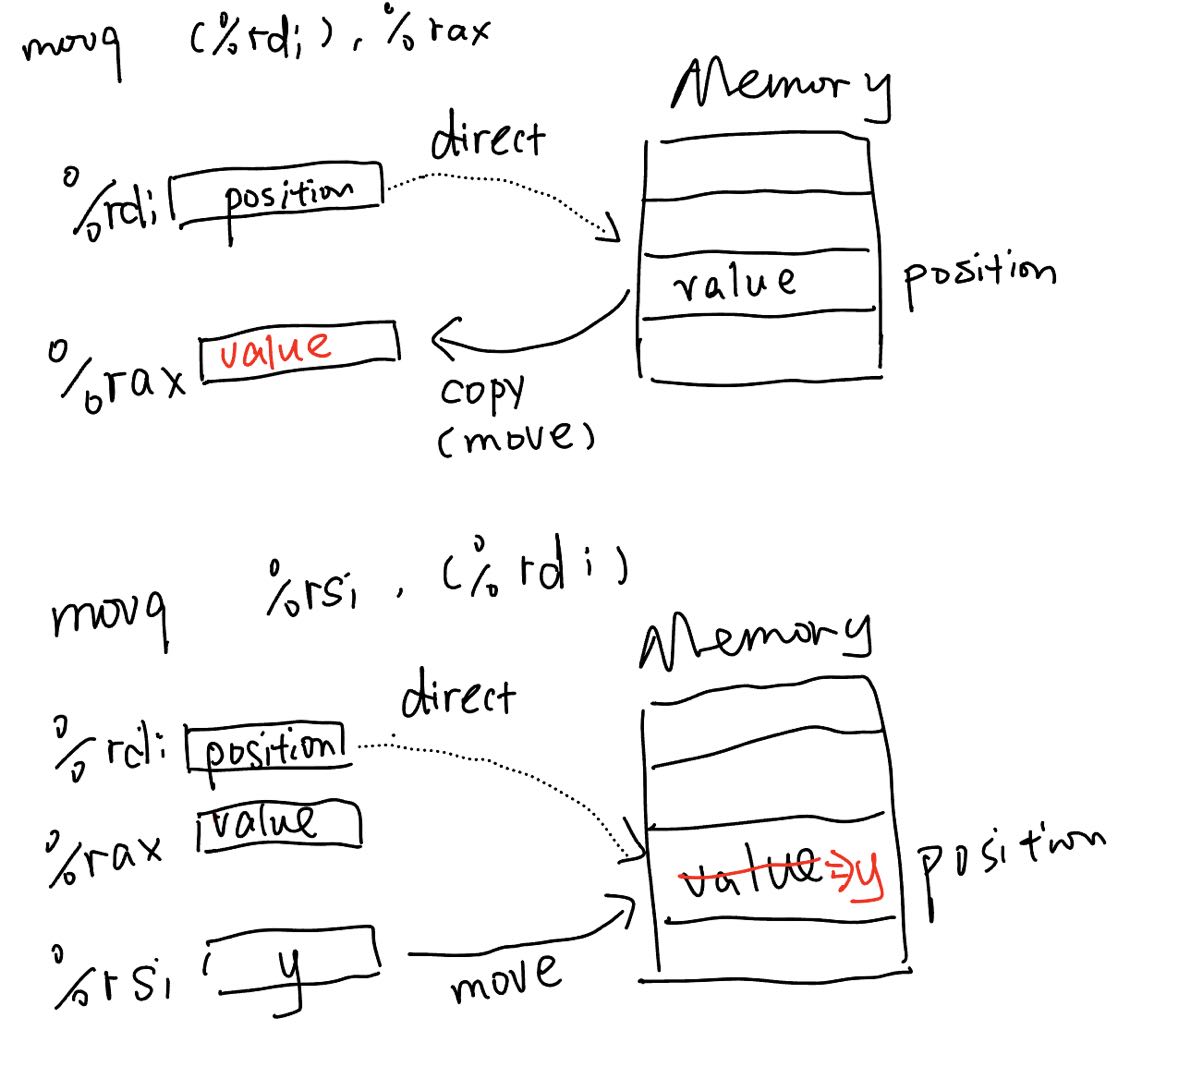 movq (%rdi), %rax
Memory
direct
%rdi position
value position
%rax value
copy
(move)
movq %rsi, (%rdi)
Memory
direct
%rdi position
%rax value
value => y position
%rsi y
move